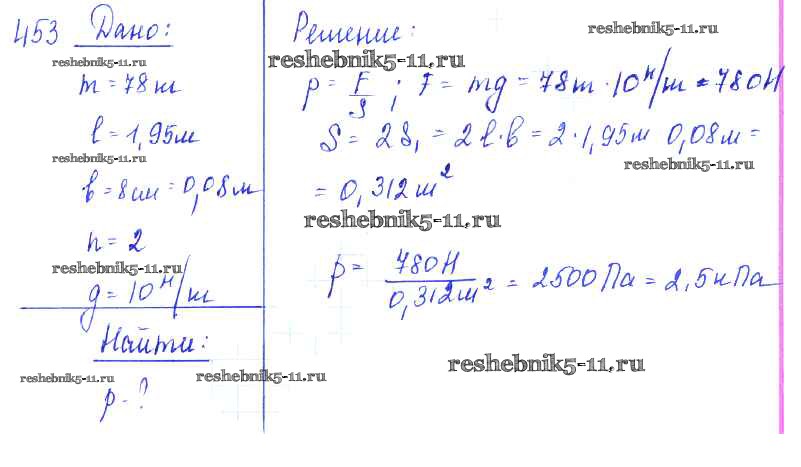 453 Дано:
m = 78 кг
l = 1,95 м
b = 8 см = 0,08 м
n = 2
g = 10 Н/кг
Найти:
p - ?
Решение:
p = F/S ; F = mg = 78 кг · 10 Н/кг = 780 Н
S = 2S₁ = 2l·b = 2·1,95м 0,08м =
= 0,312 м²
p = 780 Н / 0,312 м² = 2500 Па = 2,5 кПа
reshebnik5-11.ru
reshebnik5-11.ru
reshebnik5-11.ru
reshebnik5-11.ru
reshebnik5-11.ru
reshebnik5-11.ru
reshebnik5-11.ru
reshebnik5-11.ru
reshebnik5-11.ru
reshebnik5-11.ru